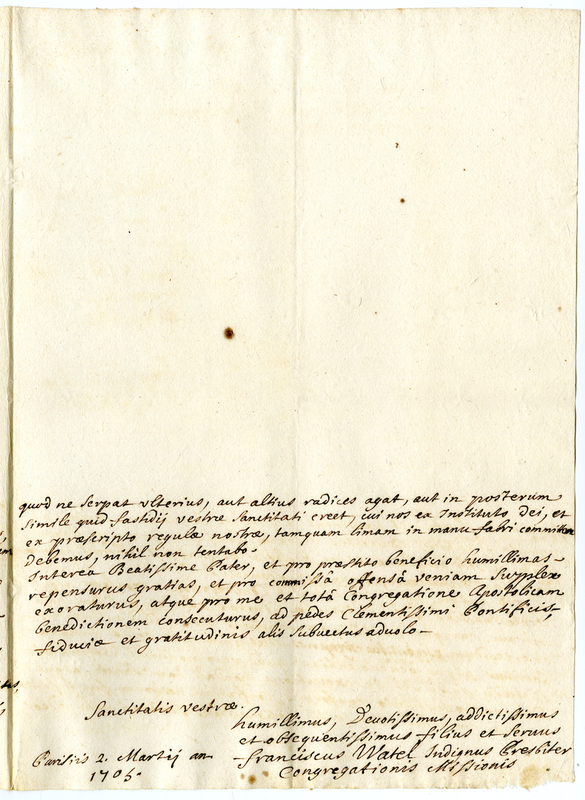 quod ne serpat ulterius, aut altius radices agat, aut in posterum
simile quid fastidij vestræ sanctitati creet, cui nos ex Instituto dei, et
ex præscripto regulæ nostræ, tamquam limam in manu fabri committere
debemus, nihil non tentabo.
Interea Beatissime Pater, et pro præstito beneficio humillimas
repensurus gratias, et pro commissâ offensâ veniam supplex
exoraturus, atque pro me et totâ Congregatione Apostolicam
benedictionem consecuturus, ad pedes Clementissimi Pontificis,
fiduciæ et gratitudinis alis subvectus advolo.
Sanctitatis vestræ.
humillimus, Devotissimus, addictissimus
et obsequentissimus filius et servus
franciscus Watel Indignus Presbiter
Congregationis Missionis
Parisiis 2. Martij an
1705.